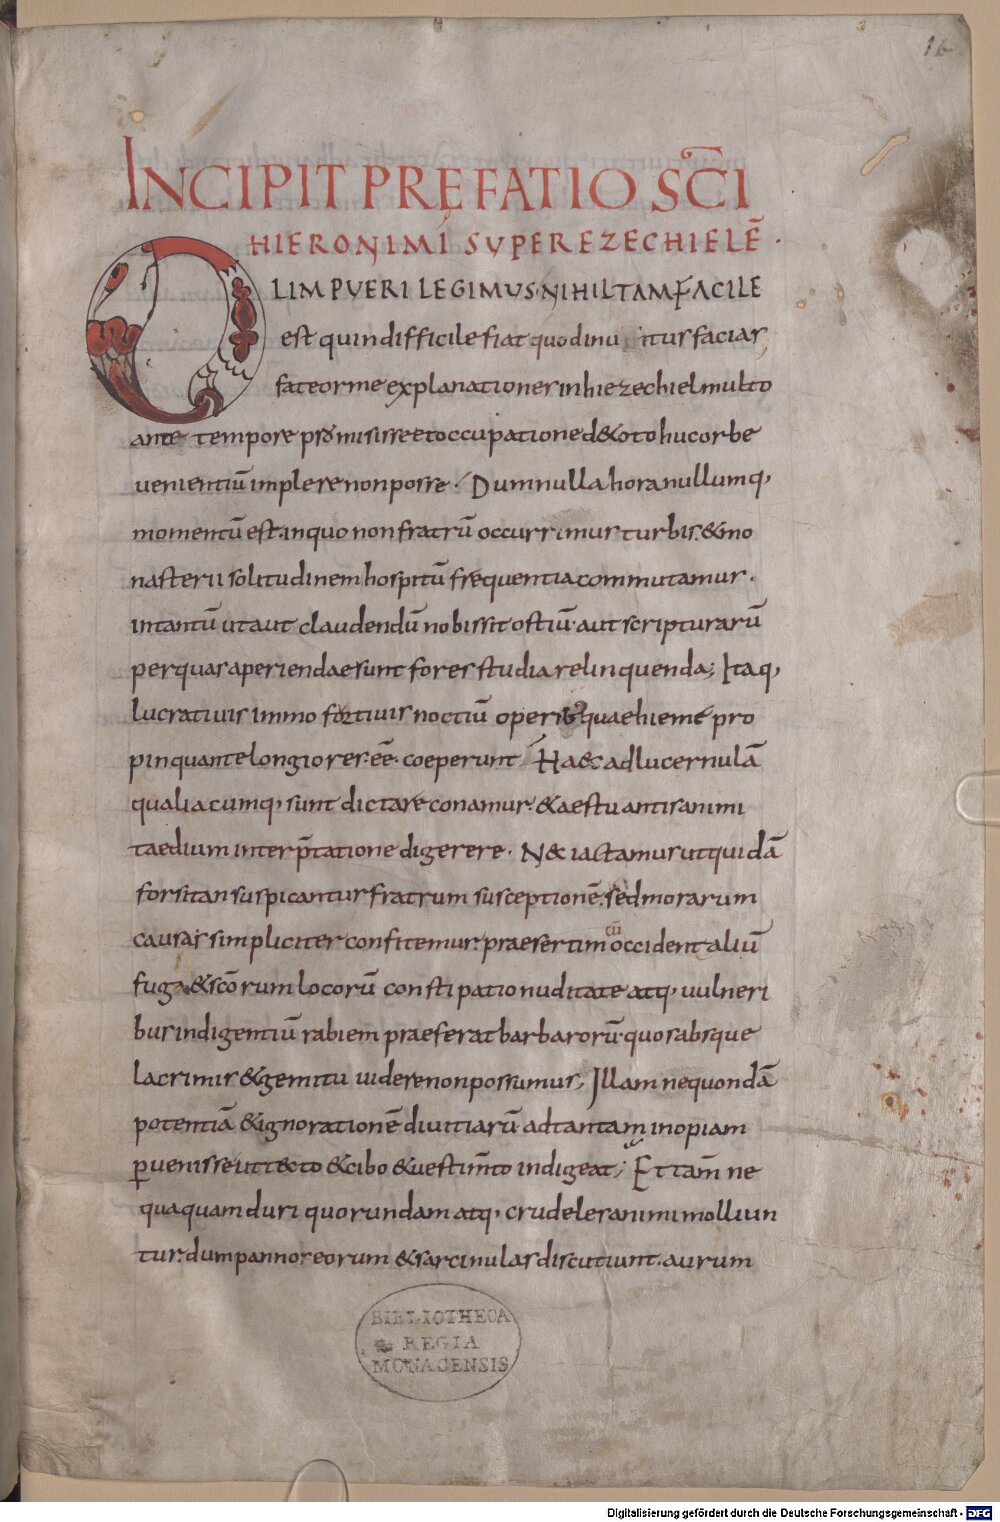 16
INCIPIT PRĘFATIO SC̄I
HIERONIMI SUPER EZECHIELĒ.
OLIM PVERI LEGIMUS. NIHIL TAM FACILE
est quin difficile fiat quod inuitus facias
fateor me explanationes in hiezechiel multo
ante tempore promisisse et occupatione de toto huc orbe
uenientiū implere non posse. Dum nulla hora nullumq;
momentū est. in quo non fratrū occurrimus turbis. & mo
nasterii solitudinem hospitū frequentia commutamur.
intantū ut aut claudendū nobis sit ostiū. aut scripturarū
per quas aperiendae sunt fores studia relinquenda; Itaq;
lucratiuis immo fortiuis noctiū operis quae hieme pro
pinquante longiores. eē. coeperunt. Haec ad lucernulā
qualiacumq; sunt dictare conamur. & aestuantis animi
taedium interp̄tatione digerere. Nec iactamus ut quidā
forsitan suspicantur fratrum susceptionē. sed morarum
causas simpliciter confitemur. praesertim cū occidentaliū
fuga & sc̄orum locorū constipatio nuditate atq; uulneri
bus indigentiū rabiem praeferat barbarorū. quos absque
lacrimis & gemitu uidere non possumus; Illam nequondā
potentiā & ignorationē diuitiarū ad tantam inopiam
puenisse ut tecto & cibo & uestim̄to indigeat; Et tam̄ ne
quaquam duri quorundam atq; crudeles animi molliun
tur. dum pannos eorum & sarcinulas discutiunt. aurum
BIBLIOTHECA
REGIA
MONACENSIS
Digitalisierung gefördert durch die Deutsche Forschungsgemeinschaft - DFG